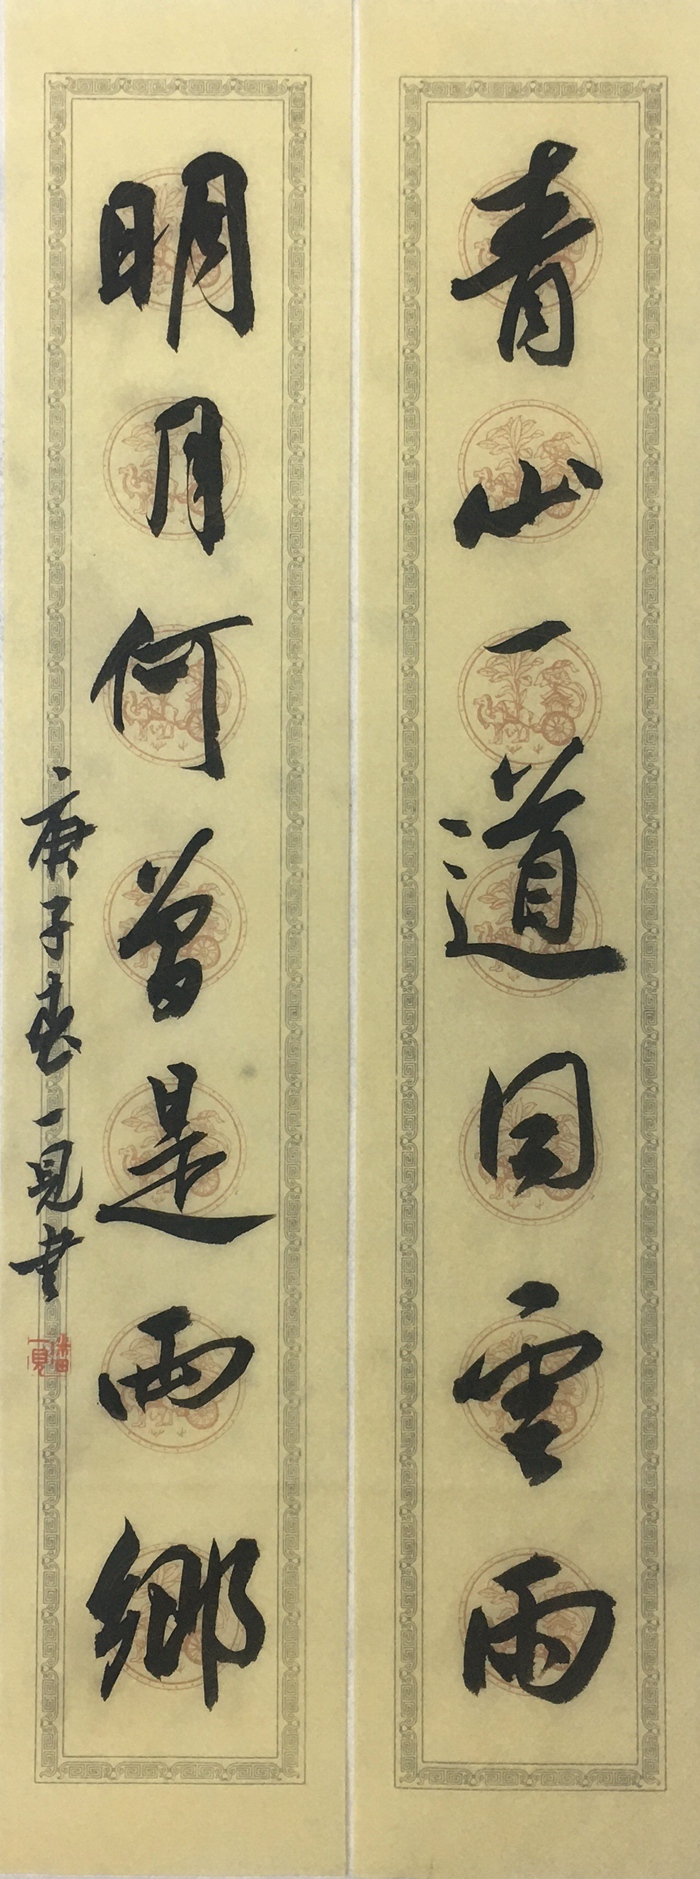 青山一道同雲雨
明月何曾是兩鄉
庚子春一見書
潘一見